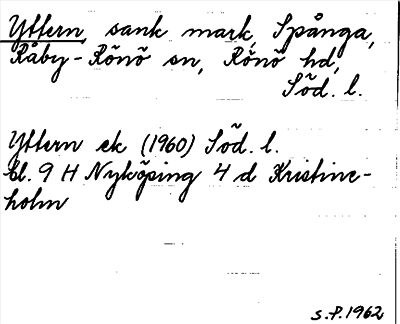 Yttern, sank mark, Spånga,
Råby-Rönö sn, Rönö hd,
Söd. l.
Yttern ek (1960) Söd. l.
bl. 9 H Nyköping 4 d Kristine-
holm
S.P. 1962